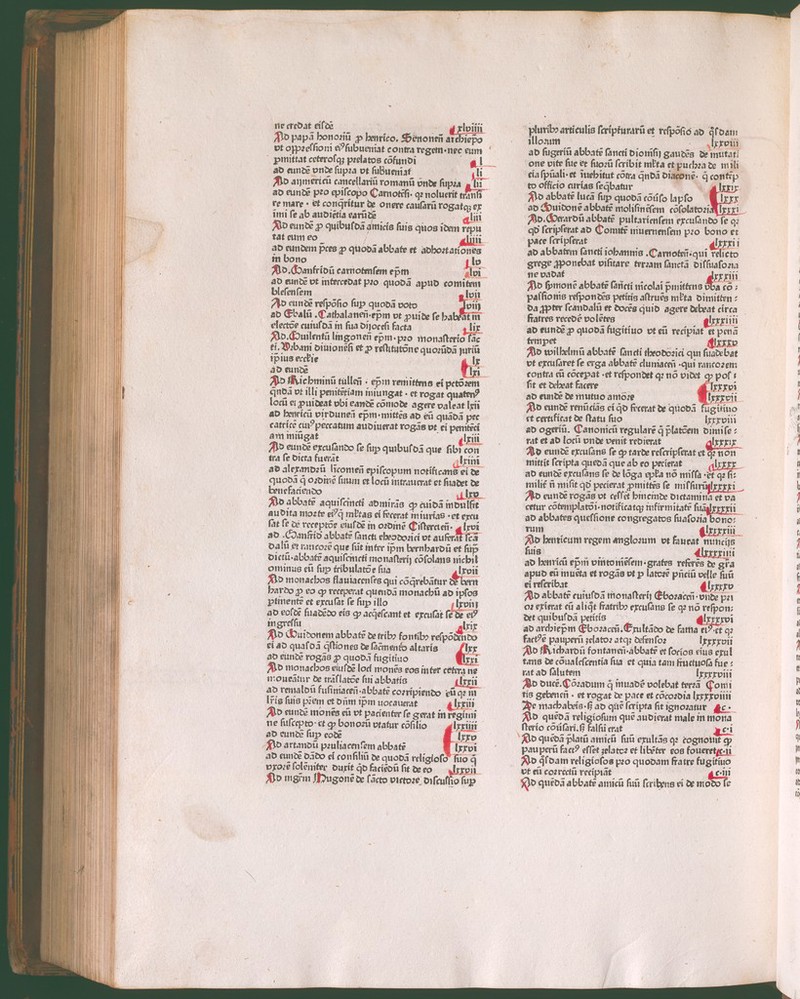 ne credat eisdē xlviiii
Ad papā honoriū ꝓ henrico. Senoneñ archiepo
vt oppressioni eiꝰ subueniat contra regem·nec eum
ꝓmittat ceterosqꝫ prelatos cōfundi l
ad eundē vnde supra vt subueniat li
Ad aymericū cancellariū romanū vnde supra lii
ad eundē pro episcopo Carnoteñ· qꝫ noluerit transi
re mare · et conqͥritur de onere causarū rogatqꝫ ex
imi se ab audiētia earūdē liii
Ad eundē ꝓ quibusdā amicis suis quos idem repu
tat eum eo liiii
ad eundem p̄ces ꝓ quodā abbate et adhortationes
in bono lv
Ad. Ganfridū carnotensem ep̄m lvi
ad eundē vt intercedat pro quodā apud comitem
blesensem lvii
Ad eundē respōsio sup quodā voto lviii
ad Ebalū · Cathalaneñ·ep̄m vt ꝓuide se habeat in
electōe cuiusdā in sua dijocesi facta lix
Ad. Guilentū lingoneñ ep̄m·pro monasterio sāc
ti. Vrbani diuionēsi et ꝓ restitutōne quorūdā iuriū
ip̄ius eccl̄ie lx
ad eundē lxi
Ad Richminū tulleñ · ep̄m remittens ei peccōrem
qn̄dā vt illi penitētiam iniungat · et rogat quatenꝰ
locū ei ꝓuideat vbi eandē cōmode agere valeat lxii
ad henricū virduneñ ep̄m·mittēs ad eū quādā pec
catricē cuiꝰ peccatum audiuerat rogās vt ei penitēci
am iniūgat lxiii
Ad eundē excusando se sup quibusdā que sibi con
tra se dicta fuerāt lxiiii
ad alexandrū licomeñ episcopum notificans ei de
quodā qͥ ordinē suum et locū intrauerat et suadet de
benefaciendo lxv
Ad abbatē aquiscincti admirās qͥ cuidā indulsit
audita morte eiꝰqͥ ml̄tas ei fecerat iniurias · et excu
sat se de receptōe eiusdē in ordinē Cisterceñ · lxvi
ad · Ganfrid abbatē sancti theodorici vt auferat scā
dalū et rancorē que sūt inter ip̄m bernhardū et sup
dictū·abbatē aquiscincti monasterij cōsolans nichil
ominus eū sup tribulatōe sua lxvii
Ad monachos flauiacenses qui cōqͥrebātur de bern
hardo ꝓ eo qͥ receperat quendā monachū ad ipsos
ꝑtinentē et excusat se sup illo lxviij
ad eosdē suadēdo eis qͥ acqͥescant et excusat se de eiꝰ
ingressu lxix
Ad Guidonem abbatē de tribꝰ fontibꝰ respōdendo
ei ad quasdā qͥstiones de sacmēto altaris lxx
ad eundē rogās ꝓ quodā fugitiuo lxxi
Ad monachos eiusdē loci monēs eos inter cetera ne
moueātur de trāslatōe sui abbatis lxxii
ad renaldū fusiniaceñ·abbatē corripiendo eū qꝫ in
lr̄is suis p̄rem et dn̄m ip̄m uocauerat lxxiii
Ad eundē monēs eū vt pacienter se gerat in regimi
ne suscepto·et ꝓ bonorū vtatur cōsilio lxxiiii
ad eundē sup eodē lxxv
Ad artandū pruliacensem abbatē lxxvi
ad eundē dādo ei consiliū de quodā religioso suo qͥ
vxorē solēniter duxit qd faciēdū sit de eo lxxvii
Ad mgr̄m Hugonē de sācto victore discussio sup
pluribꝰ articulis scripturarū et respōsio ad qͥsdam
illorum lxxviii
ad sugeriū abbatē sancti dionisij gaudēs de mutati
one vite sue et suorū scribit ml̄ta et puchra de mili
cia spūali·et īuehitur cōtra qndā diaconē· qͥ contēp
to officio curias seqͥbatur lxxix
Ad abbatē lucā sup quodā cōuso lapso lxxx
ad Guidonē abbatē molismēsem cōsolatoria lxxxi
Ad. Gerardū abbatē pultariensem excusando se qꝫ
qd scripserat ad Comitē niuernensem pro bono et
pace scripserat lxxxii
ad abbatem sancti iohannis · Carnoteñ·qui relicto
grege ꝓponebat visitare terram sanctā dissuasoria
ne vadat lxxxiii
Ad symonē abbatē sancti nicolai p̄mittens v̄ba cō :
passionis respondēs petitis astruēs ml̄ta dimitten :
da ꝓpter scandalū et docēs quid agere debeat circa
fratres recedē volētes lxxxiiii
ad eundē ꝓ quodā fugitiuo vt eū recipiat et penā
temperet lxxxv
Ad wilhelmū abbatē sancti theodorici qui suadebat
vt excusaret se erga abbatē cluniaceñ ·qui rancorem
contra eū cōceperat ·et respondet qꝫ nō videt qͥ pos :
sit et debeat facere lxxxvi
ad eundē de mutuo amōre lxxxvii
Ad eundē renūcias ei qd fecerat de quodā fugitiuo
et certificat de statu suo lxxxviii
ad ogeriū. Canonicū regularē qͥ p̄latōem dimise :
rat et ad locū vnde venit redierat lxxxix
Ad eundē excusans se qͥ tarde rescripserat et qꝫ non
mittit scripta quedā que ab eo pecierat lxxxx
ad eundē excusans se de lōga ep̄la nō missa·et qꝫ si:
militē ñ misit qd pecierat ꝓmittēs se missurū lxxxxi
Ad eundē rogās vt cesset hincinde dictamina et va
cetur cōtemplatōi·notificatqꝫ infirmitatē suā lxxxxii
ad abbates quessione congregatos suasoria bono:
rum lxxxxiii
Ad henricum regem anglorum vt faueat nuncijs
suis lxxxxiiii
ad henricū ep̄m vintoniēsem·grates referēs de gr̄a
apud eū inuēta et rogās vt ꝓ latorē p̄nciū velle suū
ei rescribat lxxxxv
Ad abbatē cuiusdā monasterij Eboraceñ·vnde pri
or exierat cū aliqͥt fratribꝰ excusans se qꝫ nō respon:
det quibusdā petitis lxxxxvi
ad archiep̄m Eboraceñ. Exultādo de fama eiꝰ·et qꝫ
factꝰē pauperū zelator atqꝫ defensor lxxxxvii
Ad Richardū fontaneñ·abbatē et socios eius exul
tans de cōualescentia sua et quia tam fructuosa fue :
rat ad salutem lxxxxviii
Ad ducē. Cōradum qͥ inuadē volebat terrā Comi
tis gebeneñ · et rogat de pace et cōcordia lxxxxviiii
De machabeis·s ad quē scripta sit ignoratur · c ·
Ad quēdā religiosum quē audierat male in mona
sterio cōuersari.s falsū erat c·i
Ad quēdā p̄latū amicū suū exultās qꝫ cognouit qͥ
pauperū factꝰ esset zelator et libēter eos foueret c·ii
Ad qͥsdam religiosos pro quodam fratre fugitiuo
vt eū correctū recipiāt c·iii
Ad quēdā abbatē amicū suū scribens ei de modo se